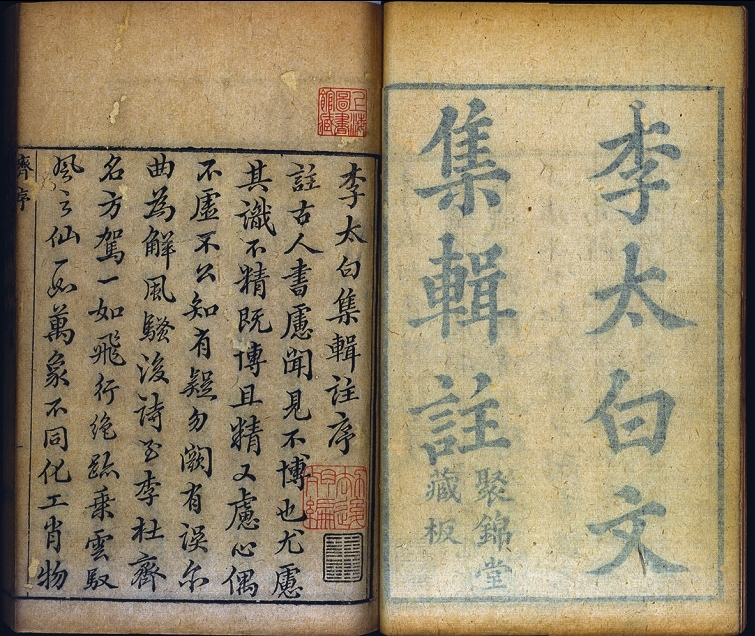 李太白文
集輯註
聚錦堂
藏板
李太白集輯註序
註古人書慮聞見不博也尤慮
其識不精既博且精又慮心偶
不虛不公知有疑勿闕有誤尓
曲為解風騷後詩至李杜齊
名方駕一如飛行絕跡乗雲馭
風之仙一如萬象不同化工肖物
齊序
上海圖書館藏